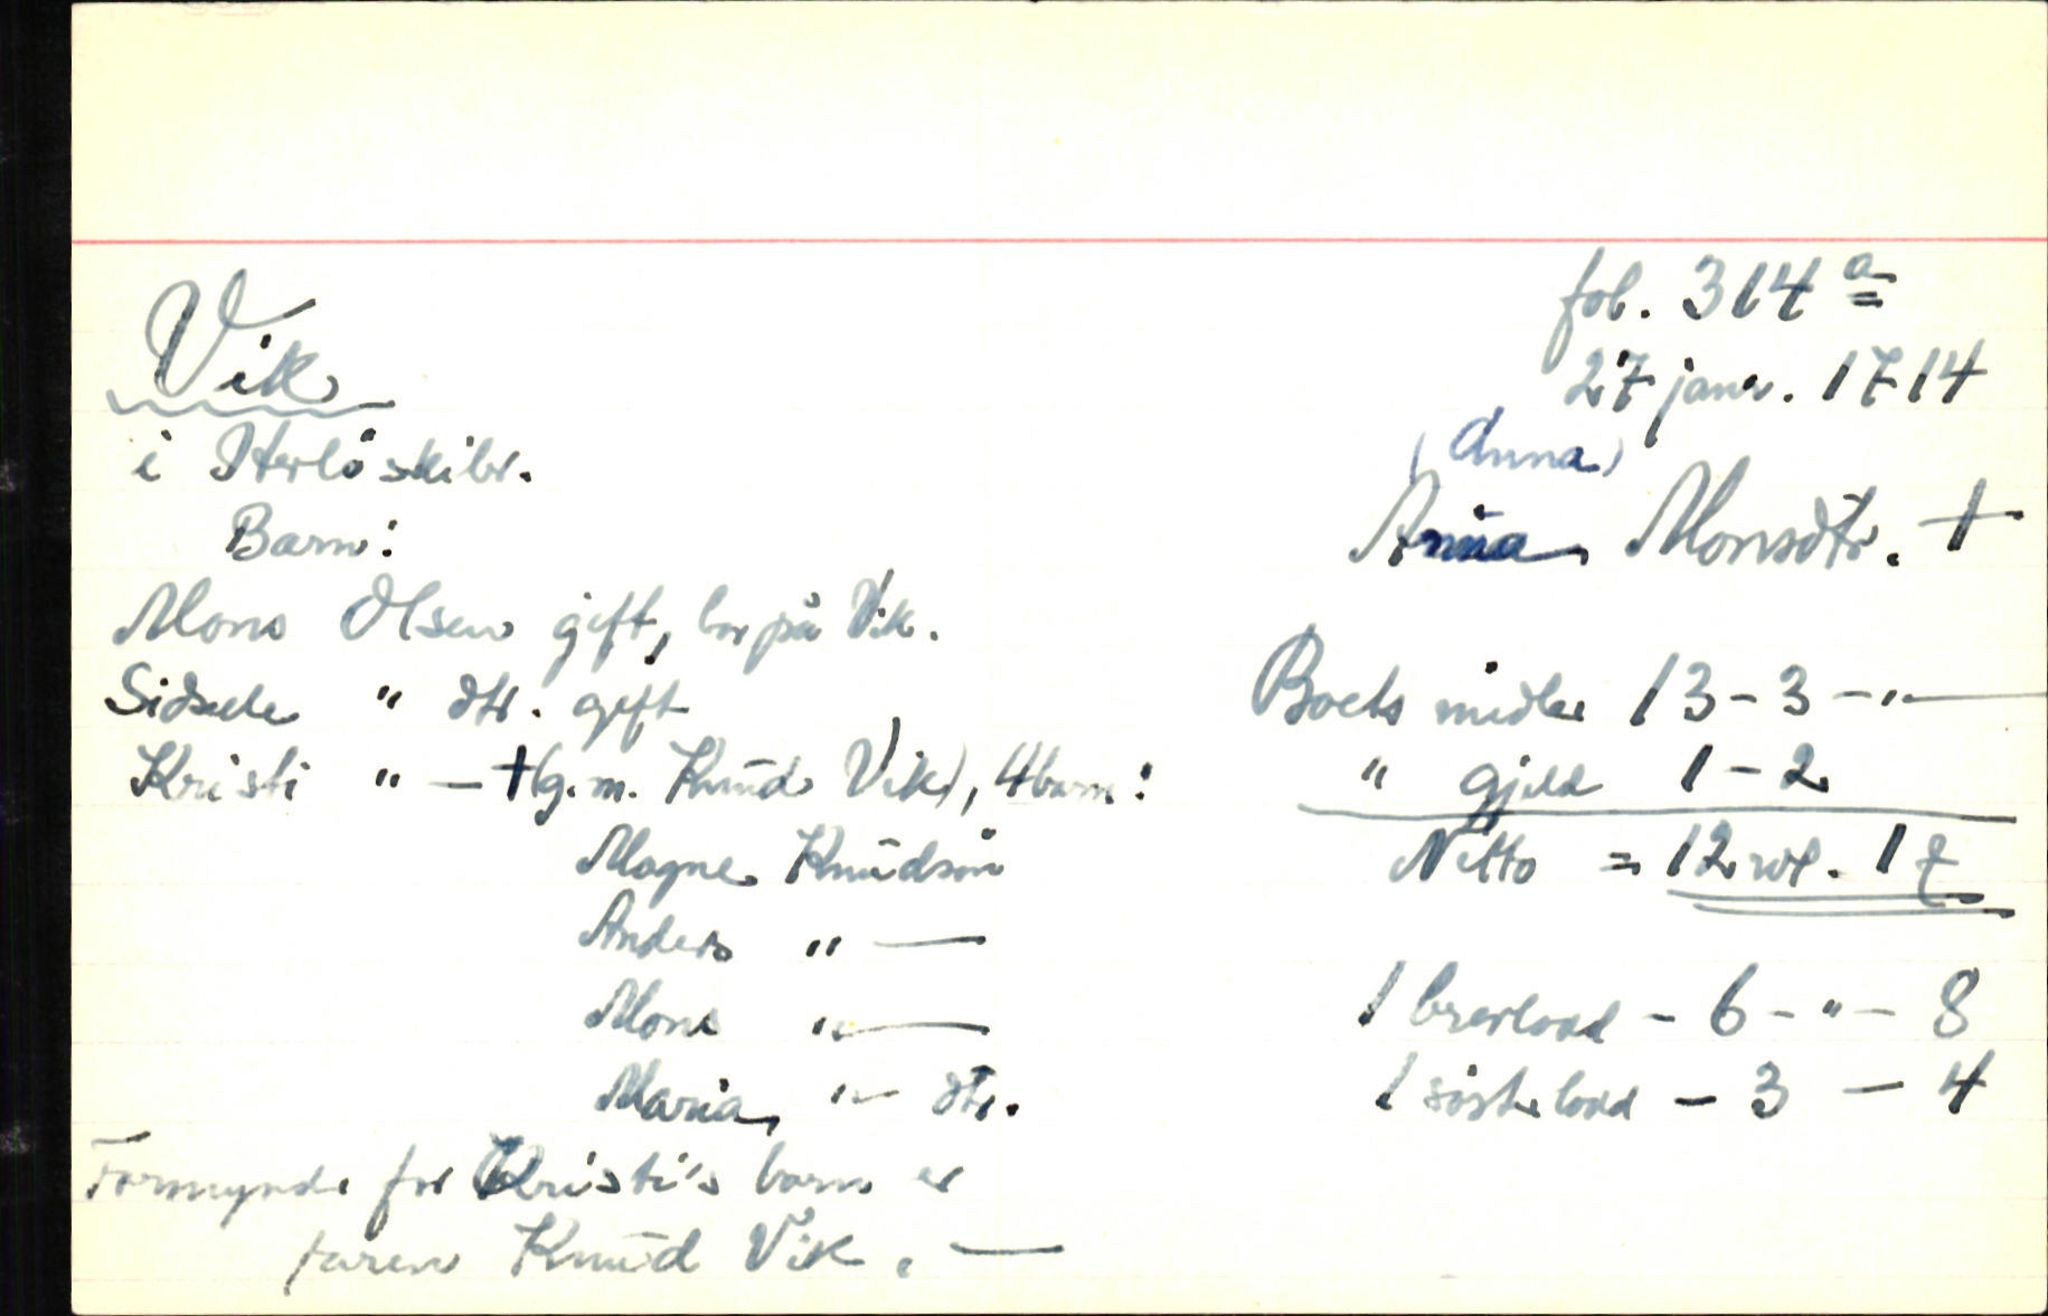 fol. 314 a
27 janr. 1714
Vik
i Herlö skibr.
(Anna)
Anna Monsdtr. †
Barn:
Mons Olsen gift, bor på Vik.
Sidsele " dtr. gift
Kristi " — † (g.m. Knud Vik), 4 barn:
Magne Knudsön
Anders " —
Mons " —
Maria " — dtr.
Formynder for Kristi's barn er
faren Knud Vik. —
Boets midler 13 - 3 - " —
" gjeld 1 - 2
Netto = 12 rdl. 1 #
1 brorlodd - 6 - " - 8
1 søsterlodd - 3 - 4